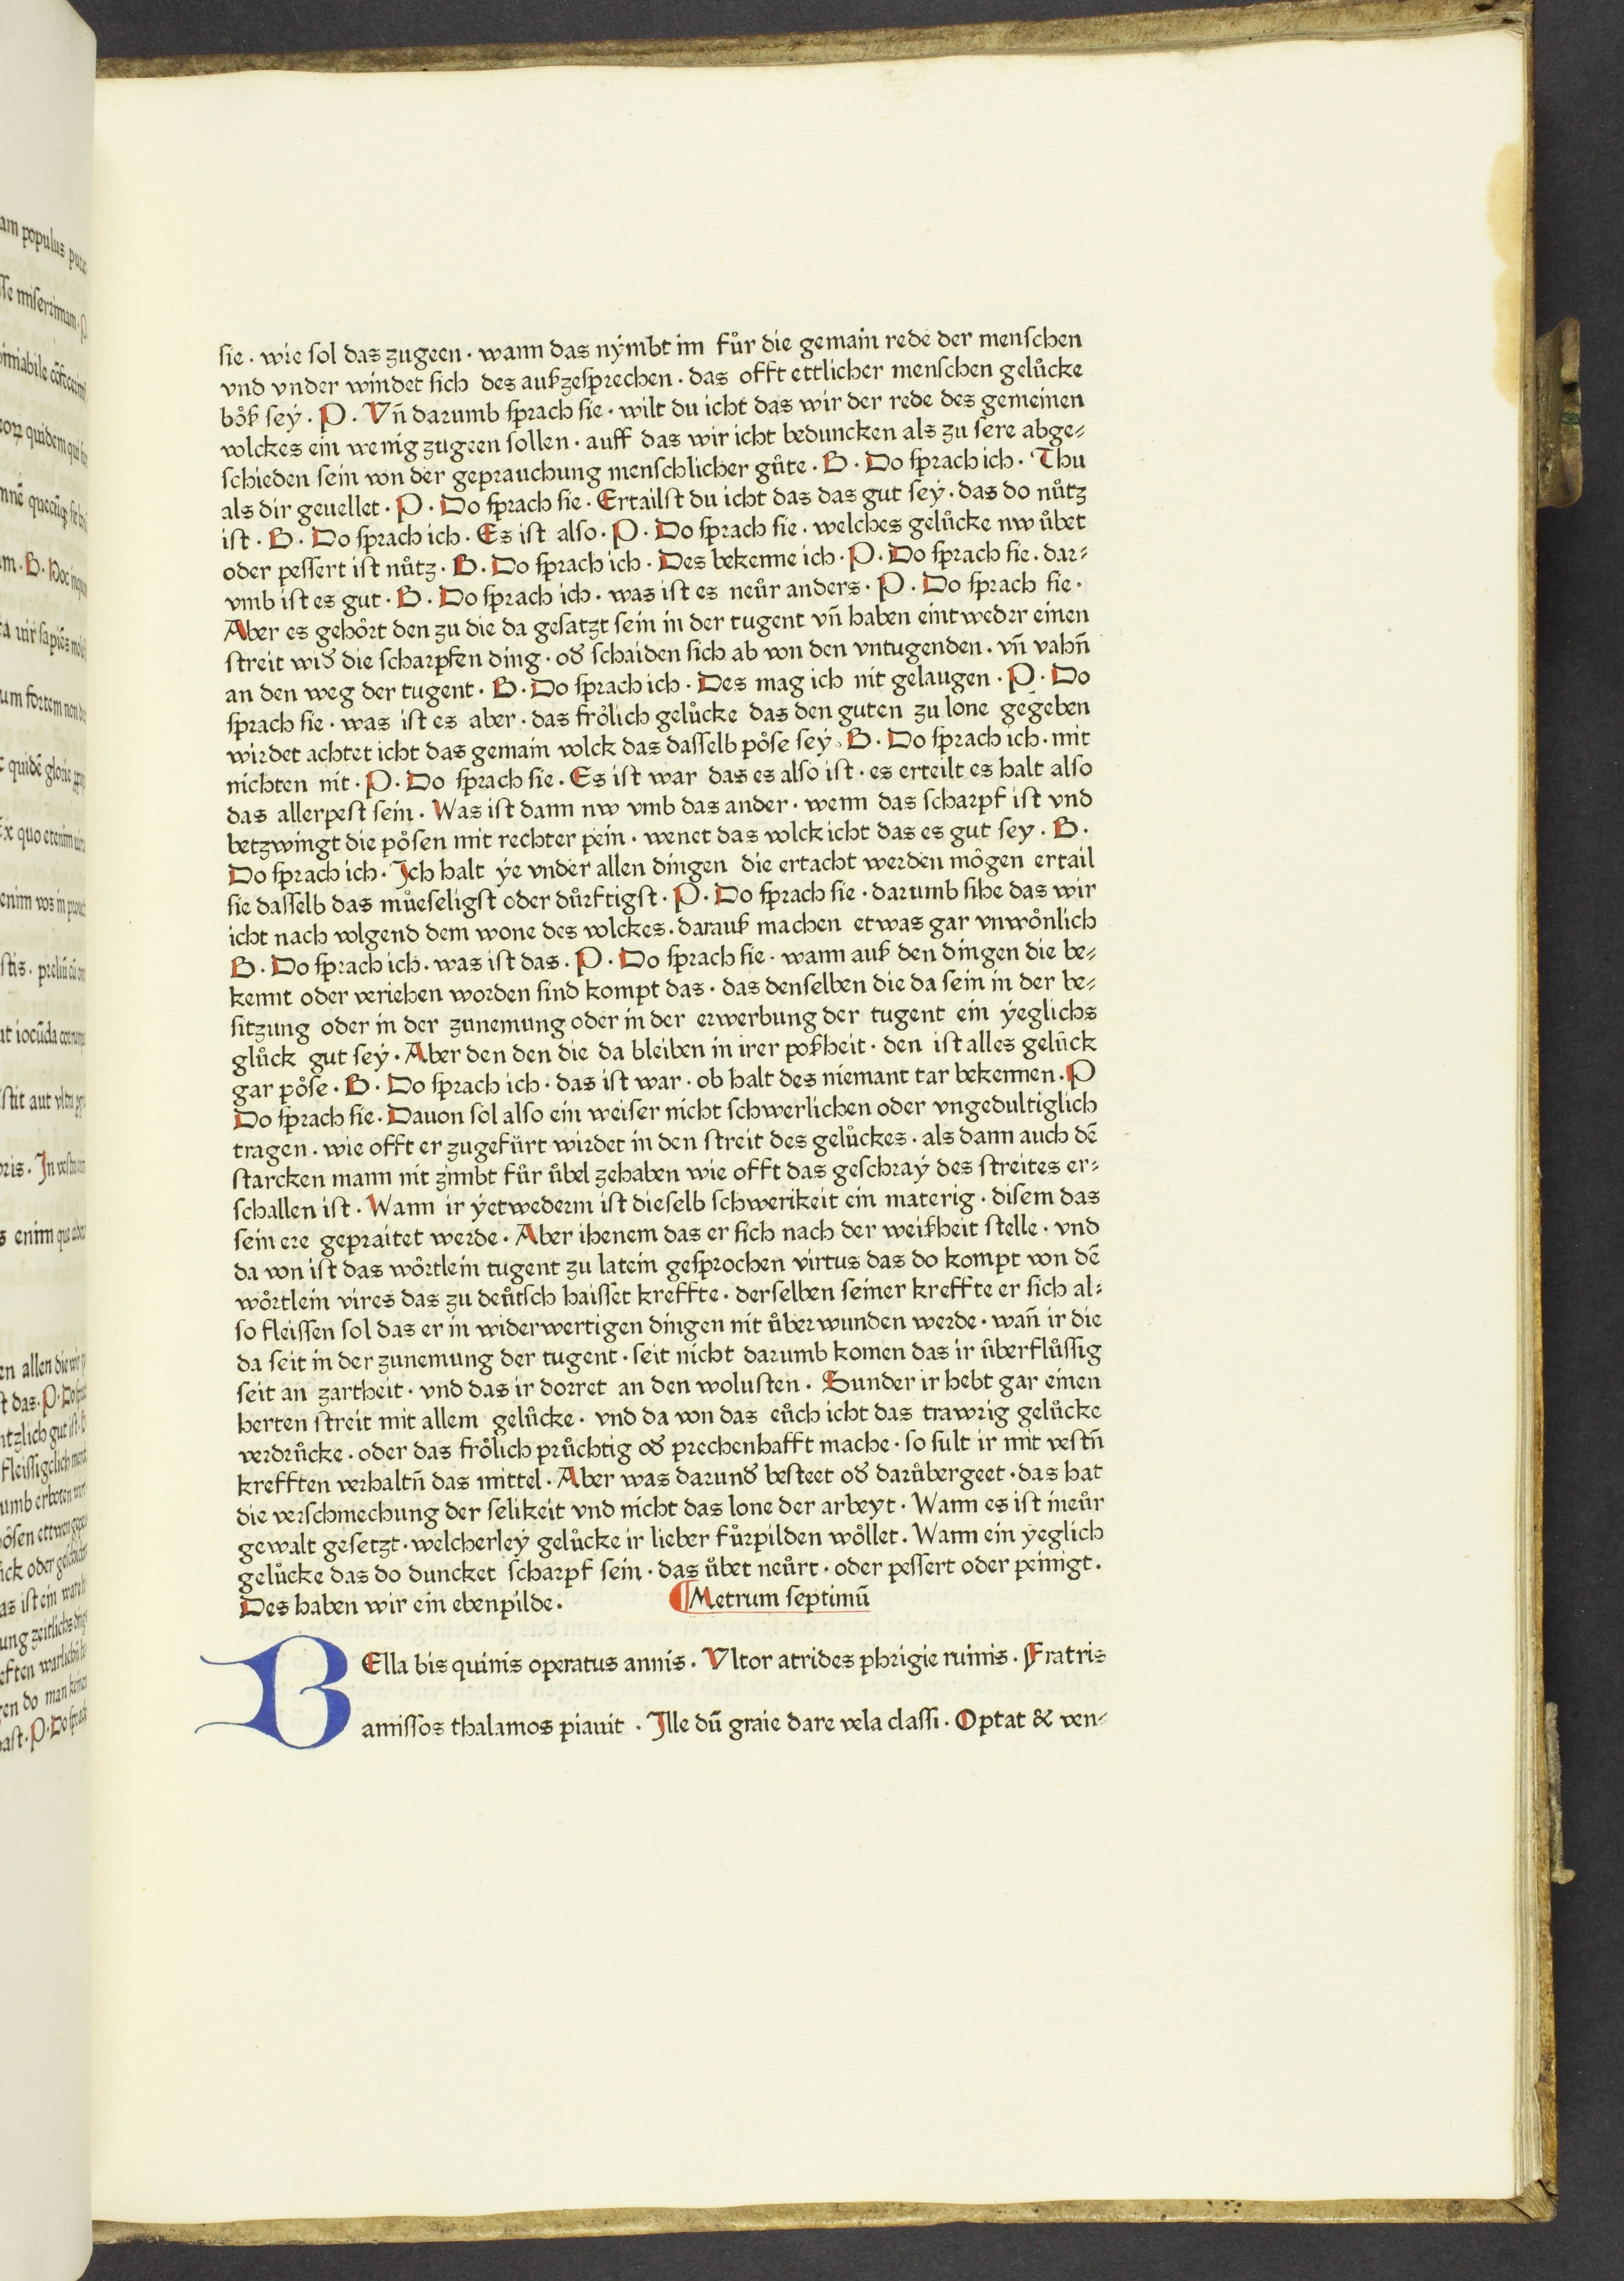 sie · wie sol das zugeen · wann das nẏmbt im fůr die gemain rede der menschen
vnd vnder windet sich des außzesprechen · das offt ettlicher menschen gelůcke
bôß seẏ · P · Vn̄ darumb sprach sie · wilt du icht das wir der rede des gemeinen
volckes ein wenig zugeen sollen · auff das wir icht beduncken als zu sere abge⸗
schieden sein von der geprauchung menschlicher gůte · B · Do sprach ich · Thu
als dir geuellet · P · Do sprach sie · Ertailst du icht das das gut sey · das do nůtz
ist · B · Do sprach ich · Es ist also · P · Do sprach sie · welches gelůcke nw ůbet
oder pessert ist nůtz · B · Do sprach ich · Des bekenne ich · P · Do sprach sie · dar⸗
vmb ist es gut · B · Do sprach ich · was ist es neůr anders · P · Do sprach sie ·
Aber es gehôrt den zu die da gesatzt sein in der tugent vn̄ haben eintweder einen
streit wid̕ die scharpfen ding · od̕ schaiden sich ab von den vntugenden · vn̄ vahn̄
an den weg der tugent · B · Do sprach ich · Des mag ich nit gelaugen · P · Do
sprach sie · was ist es aber · das frôlich gelůcke das den guten zu lone gegeben
wirdet achtet icht das gemain volck das dasselb pôse seẏ · B · Do sprach ich · mit
nichten nit · P · Do sprach sie · Es ist war das es also ist · es erteilt es halt also
das allerpest sein · Was ist dann nw vmb das ander · wenn das scharpf ist vnd
betzwingt die pôsen mit rechter pein · wenet das volck icht das es gut sey · B ·
Do sprach ich · Ich halt ẏe vnder allen dingen die ertacht werden môgen ertail
sie dasselb das můeseligst oder důrftigst · P · Do sprach sie · darumb sihe das wir
icht nach volgend dem wone des volckes · darauß machen etwas gar vnwônlich
B · Do sprach ich · was ist das · P · Do sprach sie · wann auß den dingen die be⸗
kennt oder veriehen worden sind kompt das · das denselben die da sein in der be⸗
sitzung oder in der zunemung oder in der erwerbung der tugent ein ẏeglichs
glůck gut seẏ · Aber den den die da bleiben in irer poßheit · den ist alles gelůck
gar pôse · B · Do sprach ich · das ist war · ob halt des niemant tar bekennen · P
Do sprach sie · Dauon sol also ein weiser nicht schwerlichen oder vngedultiglich
tragen · wie offt er zugefürt wirdet in den streit des gelůckes · als dann auch dē
starcken mann nit zimbt fůr ůbel zehaben wie offt das geschraẏ des streites er⸗
schallen ist · Wann ir ẏetwederm ist dieselb schwerikeit ein materig · disem das
sein ere gepraitet werde · Aber ihenem das er sich nach der weißheit stelle · vnd
da von ist das wôrtlein tugent zu latein gesprochen virtus das do kompt von dē
wôrtlein vires das zu deůtsch haisset kreffte · derselben seiner kreffte er sich al⸗
so fleissen sol das er in widerwertigen dingen nit ůberwunden werde · wan̄ ir die
da seit in der zunemung der tugent · seit nicht darumb komen das ir ůberflůssig
seit an zartheit · vnd das ir dorret an den wolusten · Sunder ir hebt gar einen
herten streit mit allem gelůcke · vnd da von das eůch icht das trawrig gelůcke
verdrůcke · oder das frôlich průchtig od̕ prechenhafft mache · so sult ir mit vestn̄
krefften verhaltn̄ das mittel · Aber was darund̕ besteet od̕ darůbergeet · das hat
die verschmechung der selikeit vnd nicht das lone der arbeyt · Wann es ist ineůr
gewalt gesetzt · welcherleẏ gelůcke ir lieber fůrpilden wôllet · Wann ein ẏeglich
gelůcke das do duncket scharpf sein · das ůbet neůrt · oder pessert oder peinigt ·
Des haben wir ein ebenpilde ·
¶Metrum septimū
BElla bis quinis operatus annis · Vltor atrides phrigie ruinis · Fratris
amissos thalamos piauit · Ille dū graie dare vela classi · Optat & ven⸗